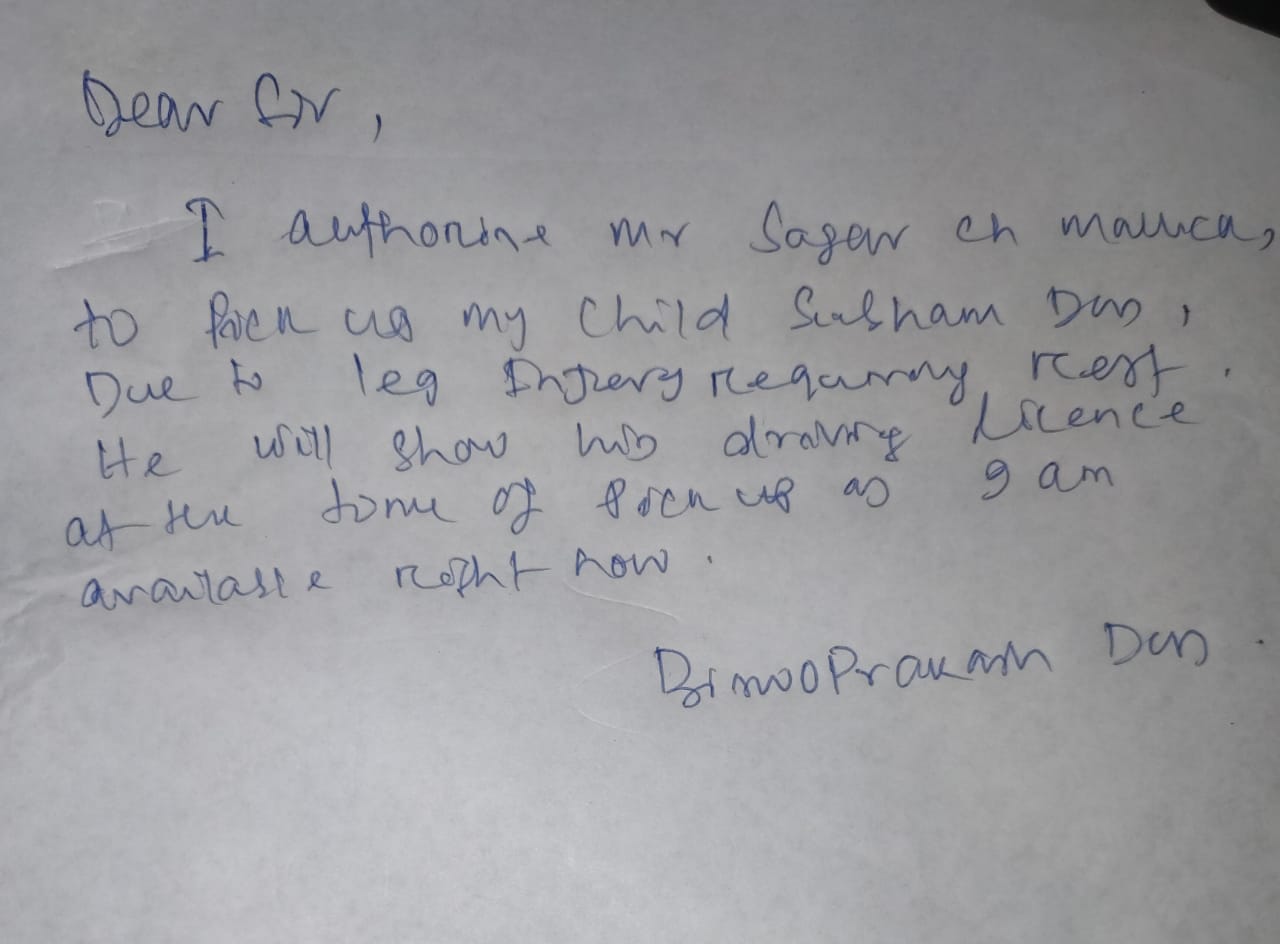 Dear Sir,
I authorize Mr Sagar ch mallica,
to pick up my child Subham Das,
Due to leg Injery requiring rest.
He will show his driving Licence
at the time of pick up as 9 am
available right now.
Binoo Prakash Das.